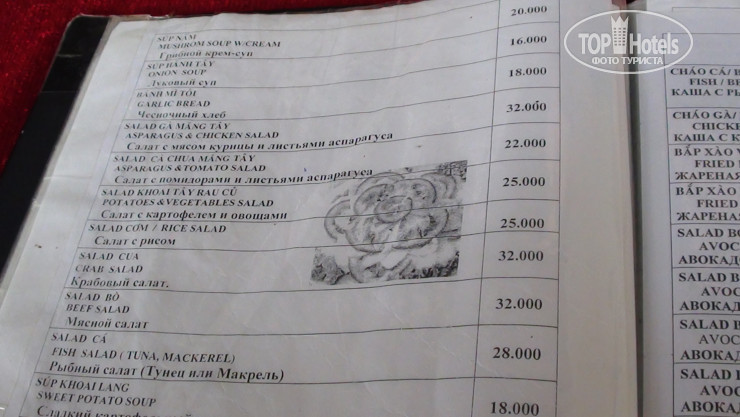 TOP Hotels
ФОТО ТУРИСТА
20.000
SÚP NẤM
MUSHROM SOUP W/CREAM
Грибной крем-суп
16.000
SÚP HÀNH TÂY
ONION SOUP
Луковый суп
18.000
BÁNH MÌ TỎI
GARLIC BREAD
Чесночный хлеб
32.000
SALAD GÀ MĂNG TÂY
ASPARAGUS & CHICKEN SALAD
Салат с мясом курицы и листьями аспарагуса
22.000
SALAD CÀ CHUA MĂNG TÂY
ASPARAGUS &TOMATO SALAD
Салат с помидорами и листьями аспарагуса
25.000
SALAD KHOAI TÂY RAU CỦ
POTATOES &VEGETABLES SALAD
Салат с картофелем и овощами
25.000
SALAD CƠM / RICE SALAD
Салат с рисом
32.000
SALAD CUA
CRAB SALAD
Крабовый салат.
32.000
SALAD BÒ
BEEF SALAD
Мясной салат
28.000
SALAD CÁ
FISH SALAD ( TUNA, MACKEREL)
Рыбный салат (Тунец или Макрель)
18.000
SÚP KHOAI LANG
SWEET POTATO SOUP
Сладкий
CHÁO CÁ/
FISH /
КАША С
CHÁO GÀ/
CHICKEN
КАША С
BẮP XÀO
FRIED
ЖАРЕНАЯ
BẮP XÀO
FRIED
ЖАРЕНАЯ
SALAD
AVOC
АВОКАД
SALAD
AVOC
АВОКАД
SALAD
AVOC
АВОКАД
SALAD
AVO
АВОКА